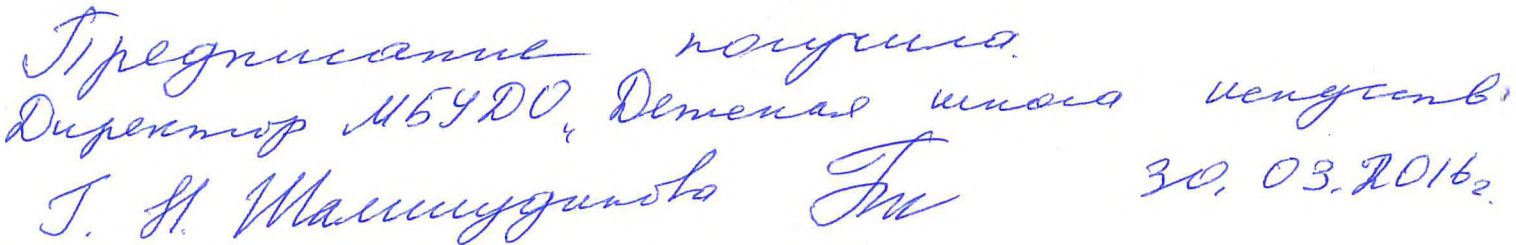 Предписание получила.
Директор МБУДО „Детская школа искусств"
Г. Н. Шамшудинова 30.03.2016г.